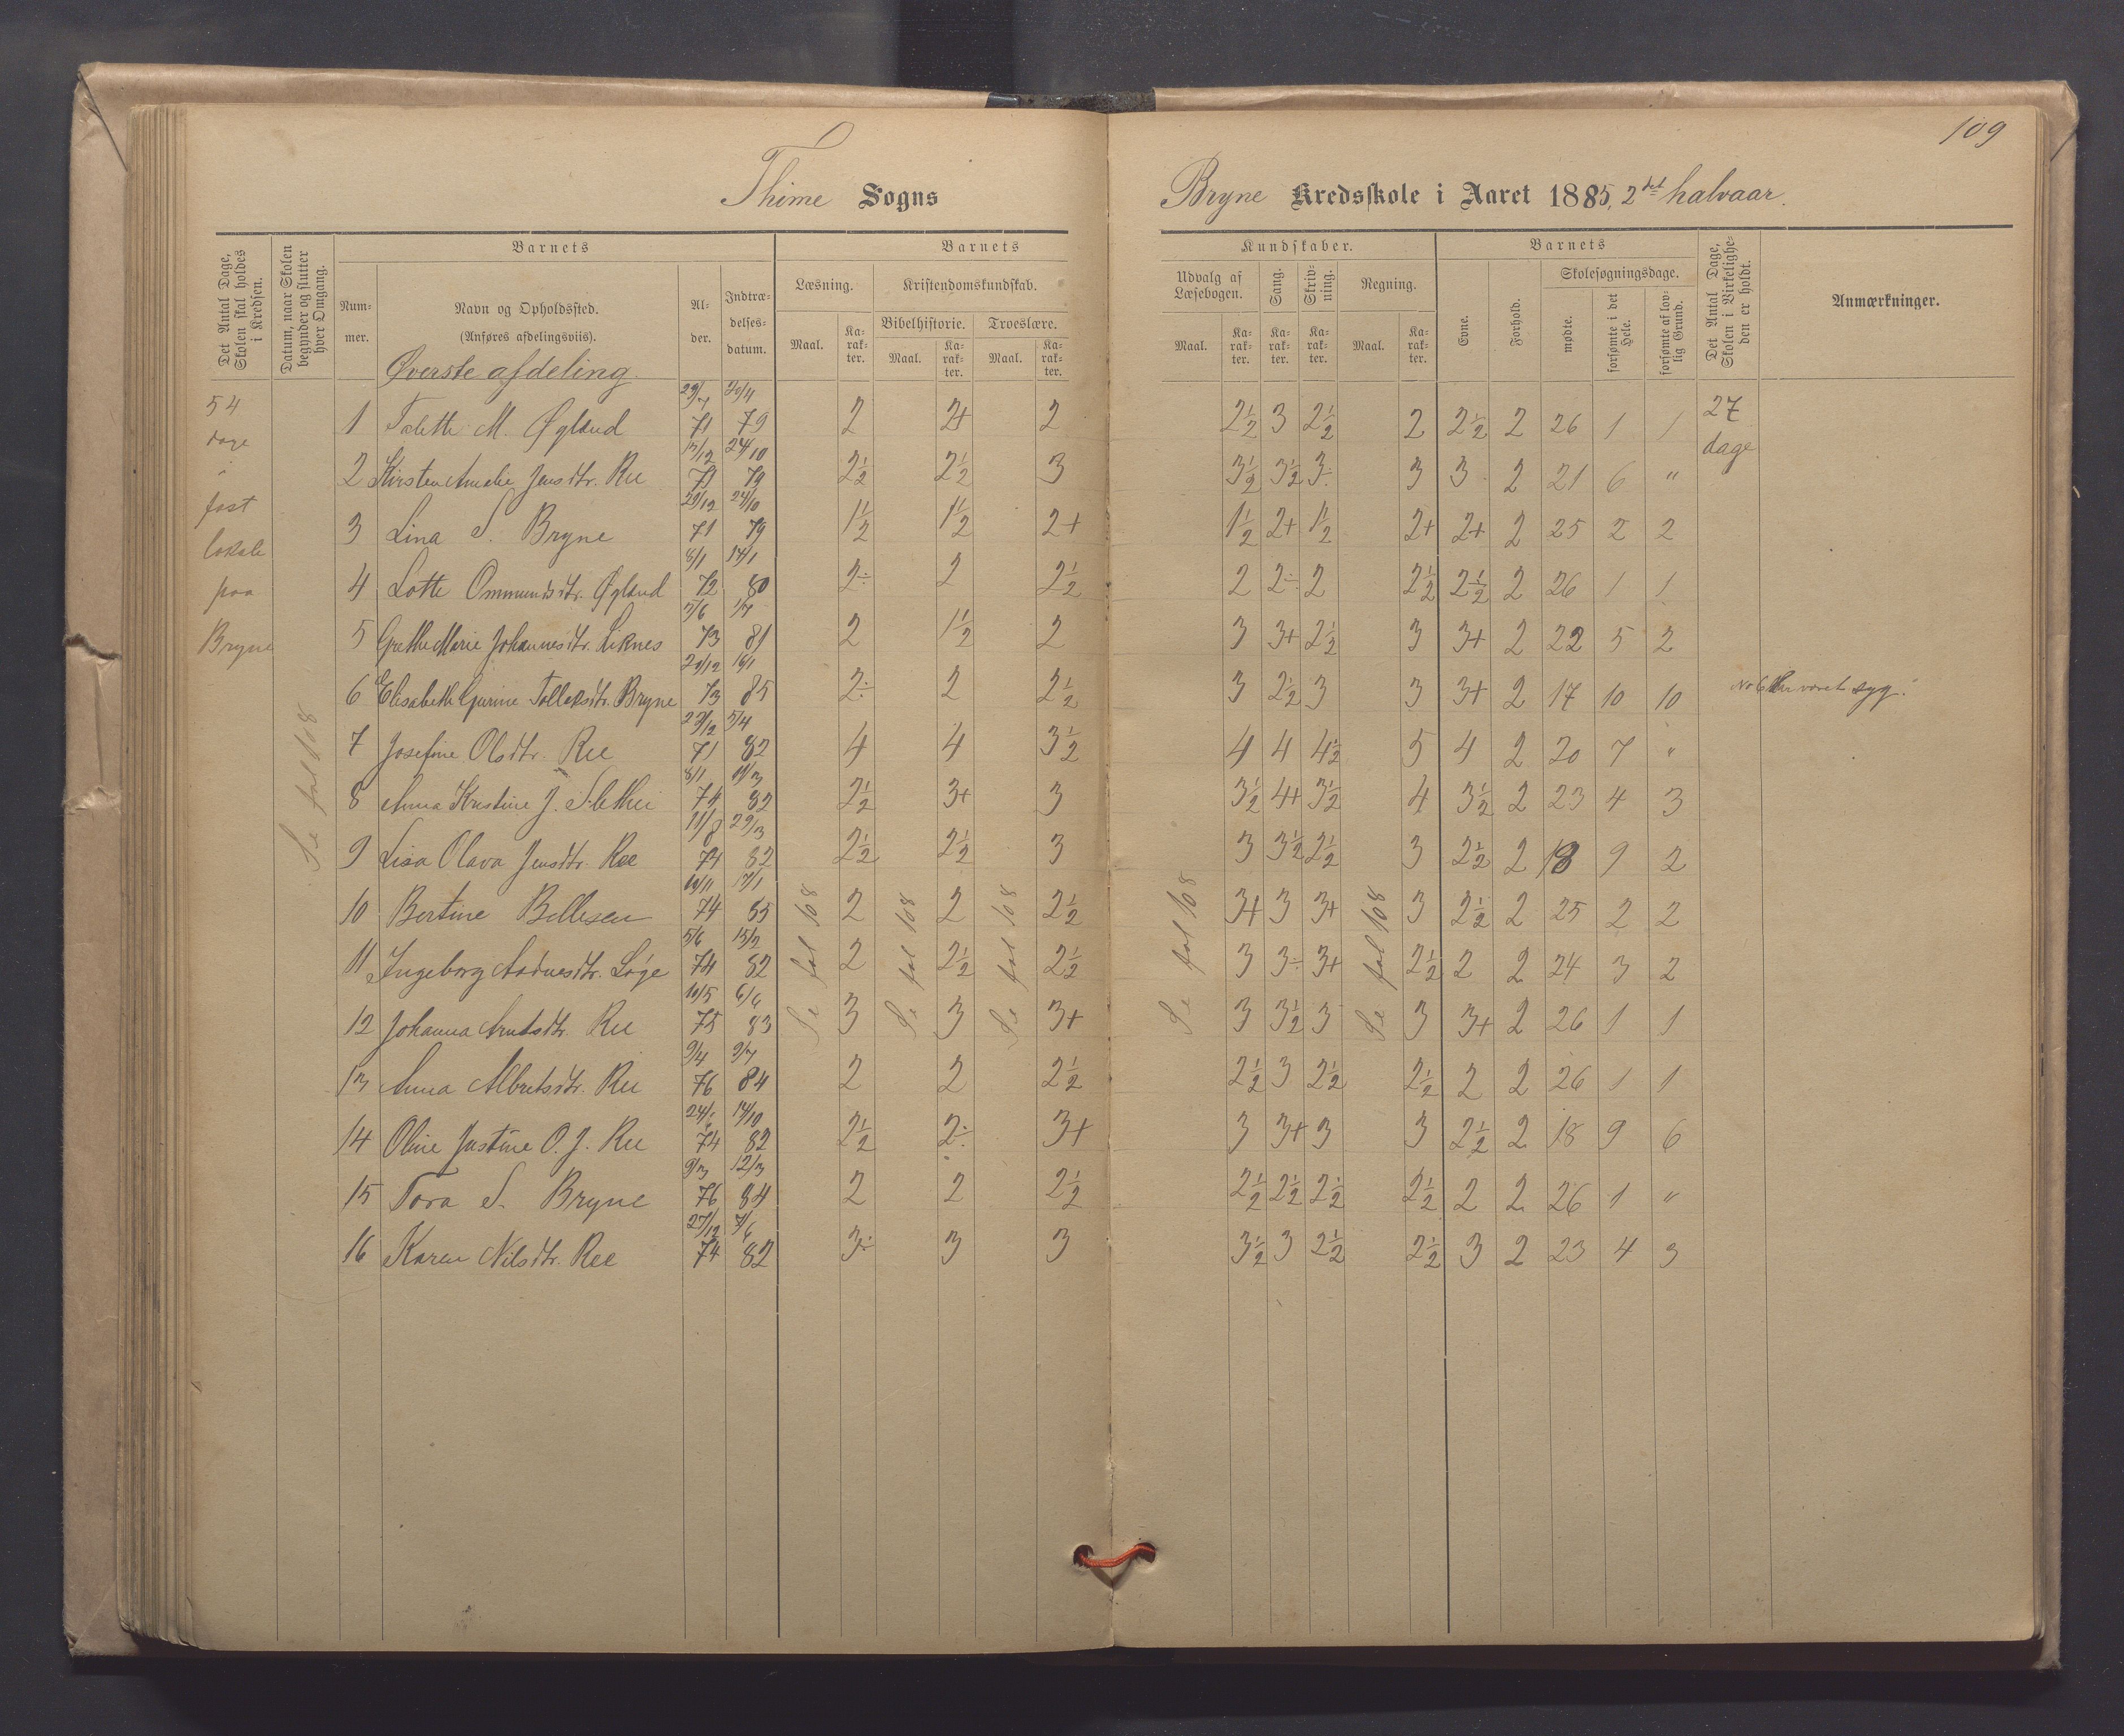 109
Thime Sogns
Bryne Kredsskole i Aaret 1885, 2det halvaar.
Det Antal Dage, Skolen skal holdes i Kredsen.
Datum, naar Skolen begynder og slutter hver Omgang.
Barnets
Nummer.
Navn og Opholdssted.
(Anføres afdelingsviis).
Alder.
Indtrædelsesdatum.
Barnets
Læsning.
Maal.
Karakter.
Kristendomskundskab.
Bibelhistorie.
Maal.
Karakter.
Troeslære.
Maal.
Karakter.
Kundskaber.
Udvalg af Læsebogen.
Maal.
Karakter.
Sang.
Karakter.
Skrivning.
Karakter.
Regning.
Maal.
Karakter.
Barnets
Evne.
Forhold.
Skolesøgningsdage.
mødte.
forsømte i det Hele.
forsømte af lovlig Grund.
Det Antal Dage, Skolen i Virkeligheden er holdt.
Anmærkninger.
Øverste afdeling.
54 dage i fast lokale paa Bryne
Se fol 108
1 Talette M. Øgland 71 20/11 79 2 2+ 2 2½ 3 2½ 2 2½ 2 26 1 1 27 dage
2 Kirsten Amalie Jensdtr. Ree 71 24/10 79 2½ 2½ 3 3½ 3½ 3÷ 3 3 2 21 6 "
3 Lina S. Bryne 29/12 71 24/10 79 1½ 1½ 2+ 1½ 2+ 1½ 2+ 2+ 2 25 2 2
4 Lotte Ommundsdtr. Øgland 8/1 72 14/1 80 2÷ 2 2½ 2 2÷ 2 2½ 2½ 2 26 1 1
5 Grethe Marie Johannesdtr. Liknes 73 1/7 81 2 1½ 2 3 3+ 2½ 3 3+ 2 22 5 2
6 Elisabeth Gurine Tolleksdtr. Bryne 73 16/1 85 2÷ 2 2½ 3 2½ 3 3 3+ 2 17 10 10 No 6 har været syg.
7 Josefine Olsdtr. Ree 23/12 71 5/4 82 4 4 3½ 4 4 4½ 5 4 2 20 7 "
8 Anna Kristine J. Slethei 8/1 74 82 2½ 3+ 3 3½ 4+ 3½ 4 3½ 2 23 4 3
9 Lisa Olava Jensdtr. Ree 11/8 74 29/3 82 2½ 2½ 3 3 3½ 2½ 3 2½ 2 18 9 2
10 Bertine Bellesen 74 17/1 85 2 2 2½ 3+ 3 3+ 3 2½ 2 25 2 2
11 Ingeborg Aadnesdtr. Løge 5/6 74 15/2 82 2 2½ 2½ 3 3÷ 3+ 2½ 2 2 24 3 2
12 Johanna Arntsdtr. Ree 10/5 75 6/6 83 3 3 3+ 3 3½ 3 3 3+ 2 26 1 1
13 Anna Albretsdtr. Ree 9/4 76 84 2 2 2½ 2½ 3 2½ 2½ 2 2 26 1 1
14 Oline Justine O. J. Ree 74 14/10 82 2½ 2÷ 3+ 3 3+ 3 3 2½ 2 18 9 6
15 Tora S. Bryne 9/3 76 12/3 84 2 2 2½ 2½ 2½ 2½ 2½ 2 2 26 1 "
16 Karen Nilsdtr. Ree 27/12 74 7/6 82 3÷ 3 3 3½ 3 2½ 2½ 3 2 23 4 3
Se fol 108
Se fol 108
Se fol 108
Se fol 108
Se fol 108